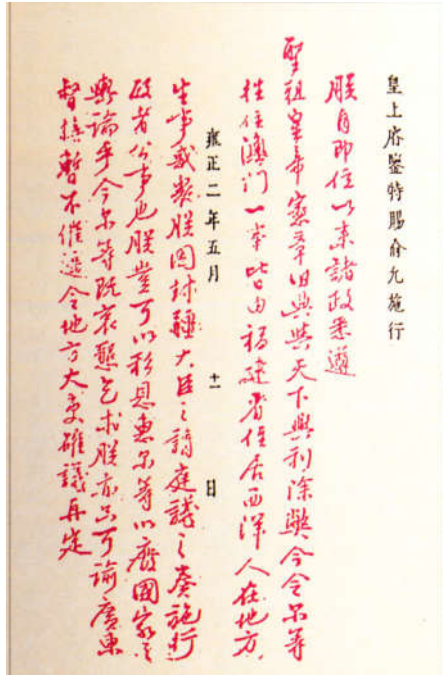 皇上睿鑒特賜俞允施行
朕自即位以来諸政悉遵
聖祖皇帝憲章旧典與天下興利除弊今令尔等
往住澳门一事皆由福建省住居西洋人在地方
雍正二年五月 十一 日
生事惑衆朕因封疆大臣之請庭議之奏施行
政者公事也朕豈可以私恩惠尔等以廢國家之
輿論乎今尔等既哀懇乞求朕亦只可諭廣東
督撫暫不催逼令地方大吏確議再定